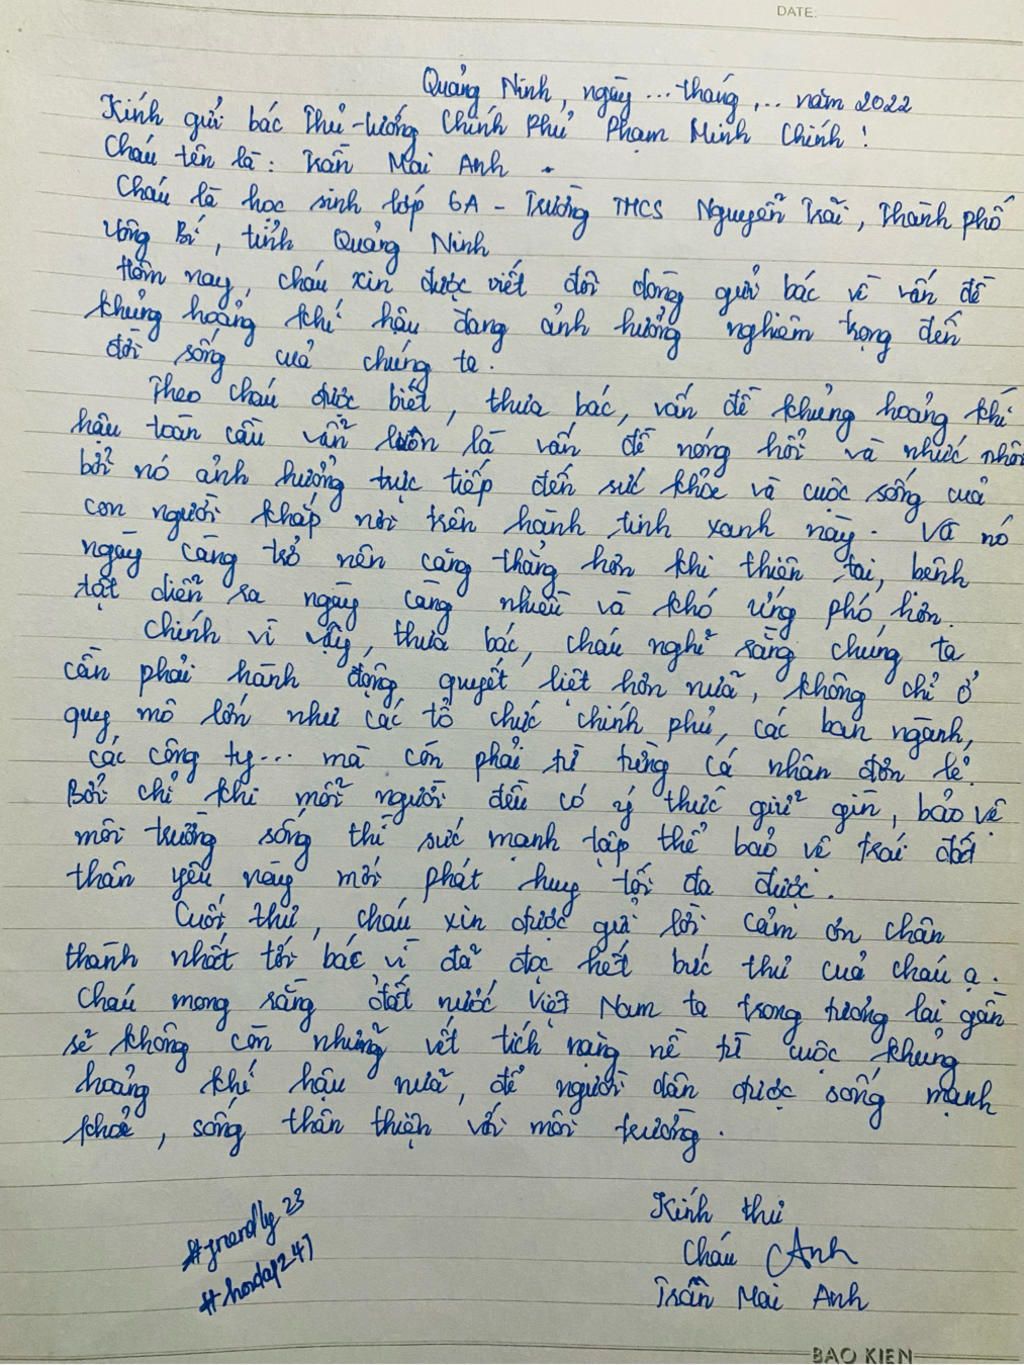 DATE:
Quảng Ninh, ngày ... tháng ... năm 2022
Kính gửi bác Thủ-tướng Chính Phủ Phạm Minh Chính!
Cháu tên là: Trần Mai Anh.
Cháu là học sinh lớp 6A - Trường THCS Nguyễn Trãi, Thành phố
Uông Bí, tỉnh Quảng Ninh
Hôm nay, cháu xin được viết đôi dòng gửi bác về vấn đề
khủng hoảng khí hậu đang ảnh hưởng nghiêm trọng đến
đời sống của chúng ta.
Theo cháu được biết, thưa bác, vấn đề khủng hoảng khí
hậu toàn cầu vẫn luôn là vấn đề nóng hổi và nhức nhối
bởi nó ảnh hưởng trực tiếp đến sức khỏe và cuộc sống của
con người khắp nơi trên hành tinh xanh này. Và nó
ngày càng trở nên căng thẳng hơn khi thiên tai, bệnh
tật diễn ra ngày càng nhiều và khó ứng phó hơn.
Chính vì vậy, thưa bác, cháu nghĩ rằng chúng ta
cần phải hành động quyết liệt hơn nữa, không chỉ ở
quy mô lớn như các tổ chức chính phủ, các ban ngành,
các công ty... mà còn phải từ từng cá nhân đơn lẻ.
Bởi chỉ khi mỗi người đều có ý thức giữ gìn, bảo vệ
môi trường sống thì sức mạnh tập thể bảo vệ trái đất
thân yêu này mới phát huy tối đa được.
Cuối thư, cháu xin được gửi lời cảm ơn chân
thành nhất tới bác vì đã đọc hết bức thư của cháu ạ.
Cháu mong rằng đất nước Việt Nam ta trong tương lai gần
sẽ không còn những vết tích nặng nề từ cuộc khủng
hoảng khí hậu nữa, để người dân được sống mạnh
khỏe, sống thân thiện với môi trường.
Kính thư
Cháu Anh
Trần Mai Anh
BAO KIEN